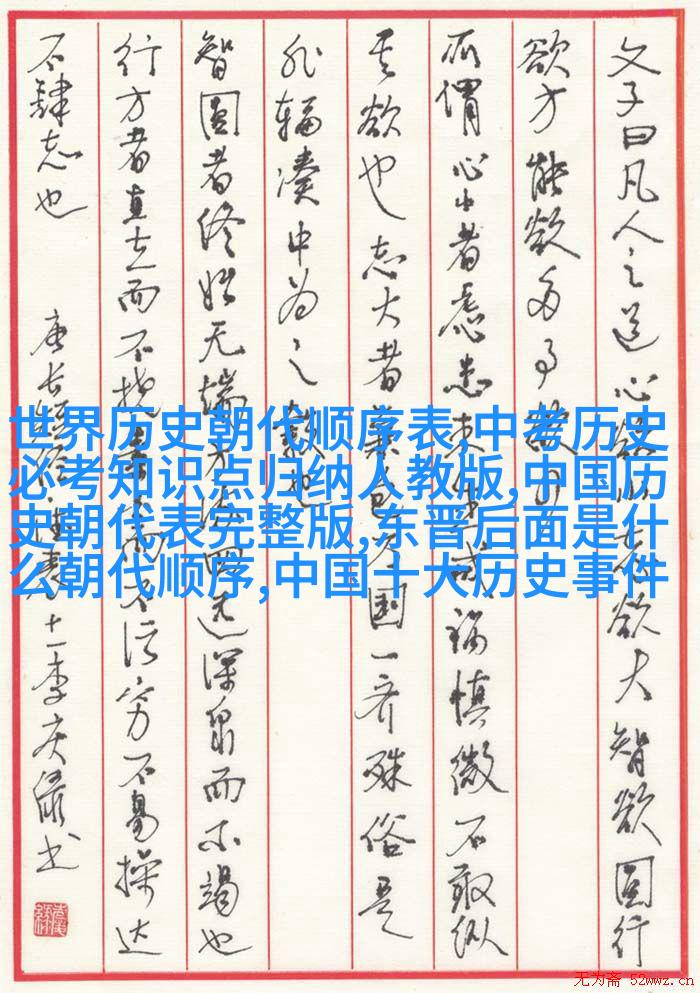 文子曰凡人之道心欲小志欲大智欲圆行
欲方能欲多事欲
所谓心小者虑患未戒祸慎微不敢纵
其欲也志大者兼包万国一齐殊俗是
非辐凑中为之毂也
智圆者终始无端方流四远深泉而不竭也
行方者直立而不挠素白而不污穷不易操达
不肆志也
唐长短经 李庆绿书
世界历史朝代顺序表,中考历史
必考知识点归纳人教版,中国历
史朝代表完整版,东晋后面是什
么朝代顺序,中国十大历史事件
无为斋 52wwz.cn